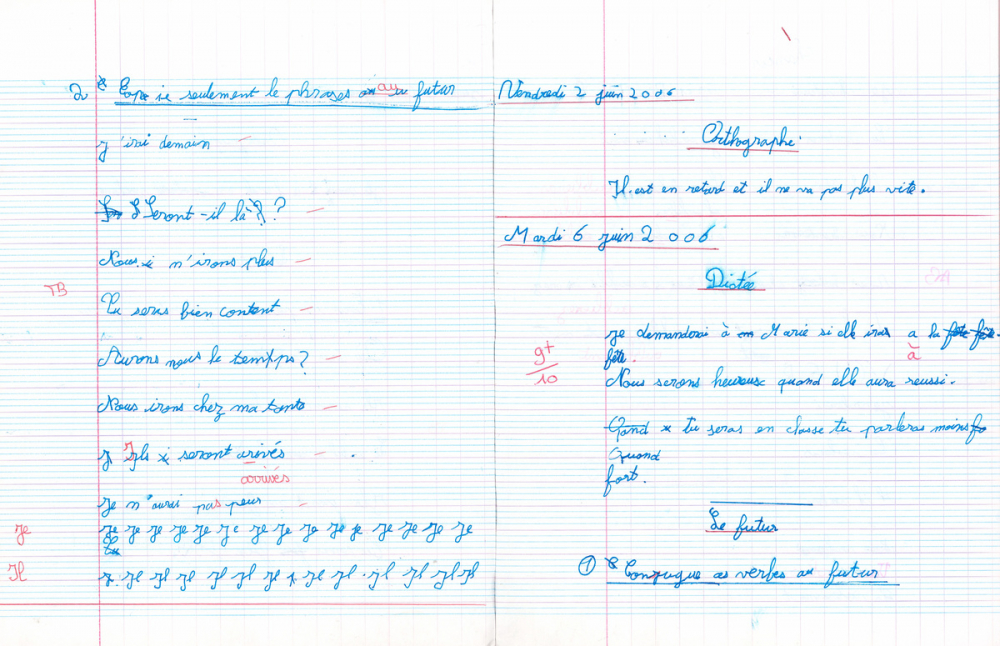 2 Copie seulement le phrases au futur
j'irai demain
Seront-il là ?
Nous n'irons plus
TB
Tu seras bien content
Aurons nous le temps ?
Nous irons chez ma tante
Ils seront arivés
arrivés
Je n'aurai pas peur
Je Je Je Je Je Je Je Je Je Je Je Je Je Je Je Je
tu
Il Il Il Il Il Il Il Il Il Il Il Il Il Il
Vendredi 2 juin 2006
Orthographe
Il est en retard et il ne va pas plus vite.
Mardi 6 juin 2006
Dictée
je demanderai à Marie si elle iras a la
à
fête.
9+
10
Nous serons heureuse quand elle aura reussi.
Qand tu seras en classe tu parleras moins
Quand
fort.
Le futur
1 Conjugue as verbes au futur